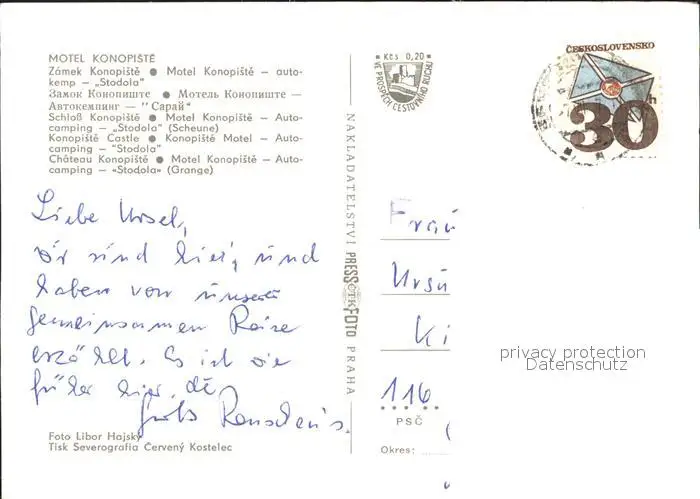 MOTEL KONOPIŠTĚ
Zámek Konopiště ● Motel Konopiště – auto-
kemp – „Stodola"
Замок Конопиште ● Мотель Конопиште –
Автокемпинг – "Сарай"
Schloß Konopiště ● Motel Konopiště – Auto-
camping – „Stodola" (Scheune)
Konopiště Castle ● Konopiště Motel – Auto-
camping – "Stodola"
Château Konopiště ● Motel Konopiště – Auto-
camping – «Stodola» (Grange)
Liebe Ursel,
wir sind hier, und
haben von unserer
gemeinsamen Reise
erzählt. Es ist wie
früher hier.
Foto Libor Hajský
Tisk Severografia Červený Kostelec
NAKLADATELSTVÍ PRESSFOTO PRAHA
Kčs 0,20
VE PROSPĚCH CESTOVNÍHO RUCHU
ČESKOSLOVENSKO
30h
Frau
Ursu
Ki
116
PSČ
Okres:
privacy protection
Datenschutz